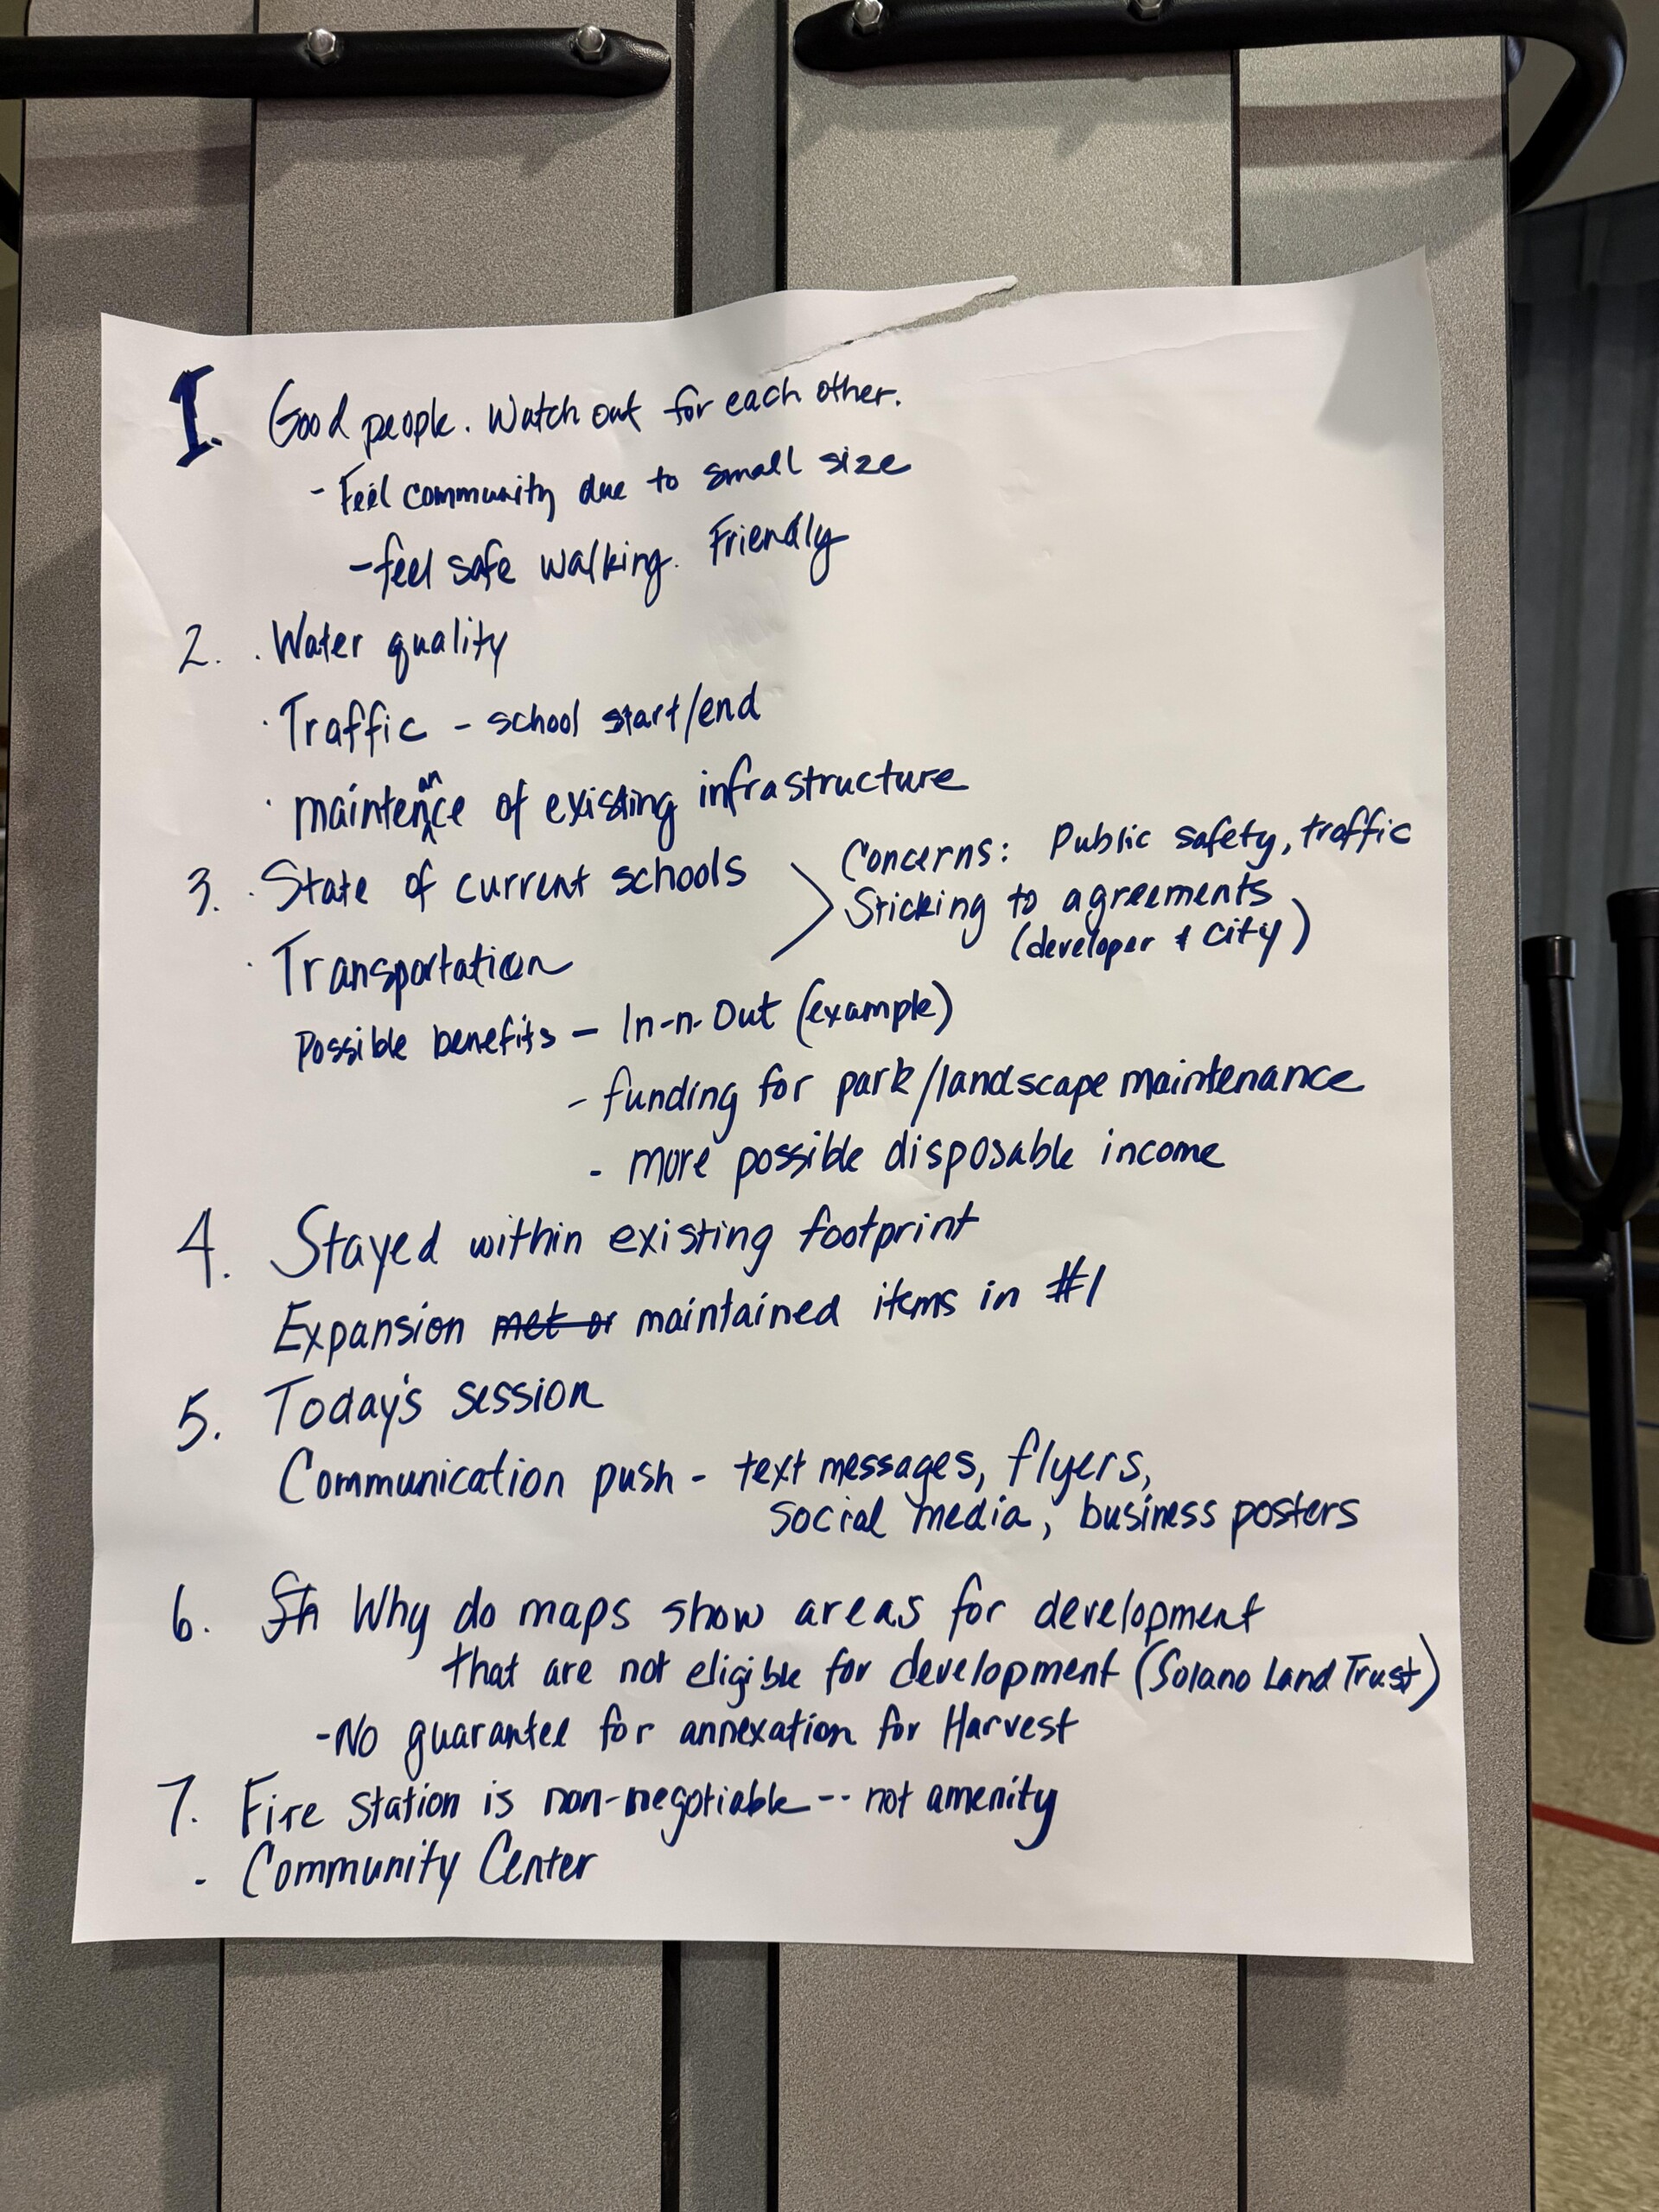 1. Good people. Watch out for each other.
- Feel community due to small size
- feel safe walking. Friendly
2. · Water quality
· Traffic - school start/end
· maintenance of existing infrastructure
3. · State of current schools
· Transportation
> Concerns: Public safety, traffic
Sticking to agreements
(developer & city)
Possible benefits - In-n-Out (example)
- funding for park/landscape maintenance
- more possible disposable income
4. Stayed within existing footprint
Expansion met or maintained items in #1
5. Today's session
Communication push - text messages, flyers,
social media, business posters
6. Why do maps show areas for development
that are not eligible for development (Solano Land Trust)
- No guarantee for annexation for Harvest
7. Fire station is non-negotiable -- not amenity
- Community Center